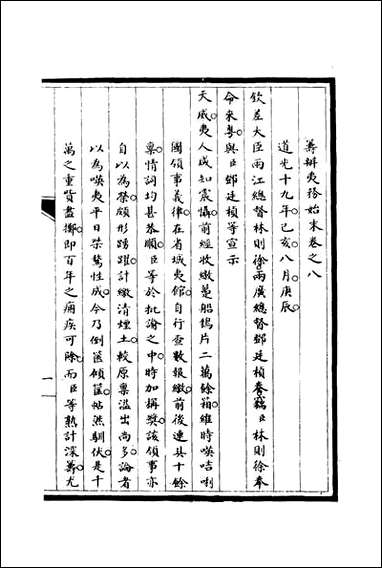 籌辦夷務始末卷之八
道光十九年己亥八月庚辰
欽差大臣兩江總督林則徐兩廣總督鄧廷楨奏竊臣林則徐奉
命來粵與臣鄧廷楨等宣示
天威夷人咸知震懾前經收繳躉船鴉片二萬餘箱維時㖞咭唎
國領事義律在省城夷館自行查數報繳前後連具十餘
稟情詞均甚恭順臣等於批諭之中時加稱獎該領事亦
自以為榮頗形踴躍計繳清煙土較原稟溢出尚多論者
以為㖞夷平日桀驁性成今乃倒篋傾筐帖然馴伏是千
萬之重貲盡擲即百年之痼疾可除而臣等熟計深籌尤
一